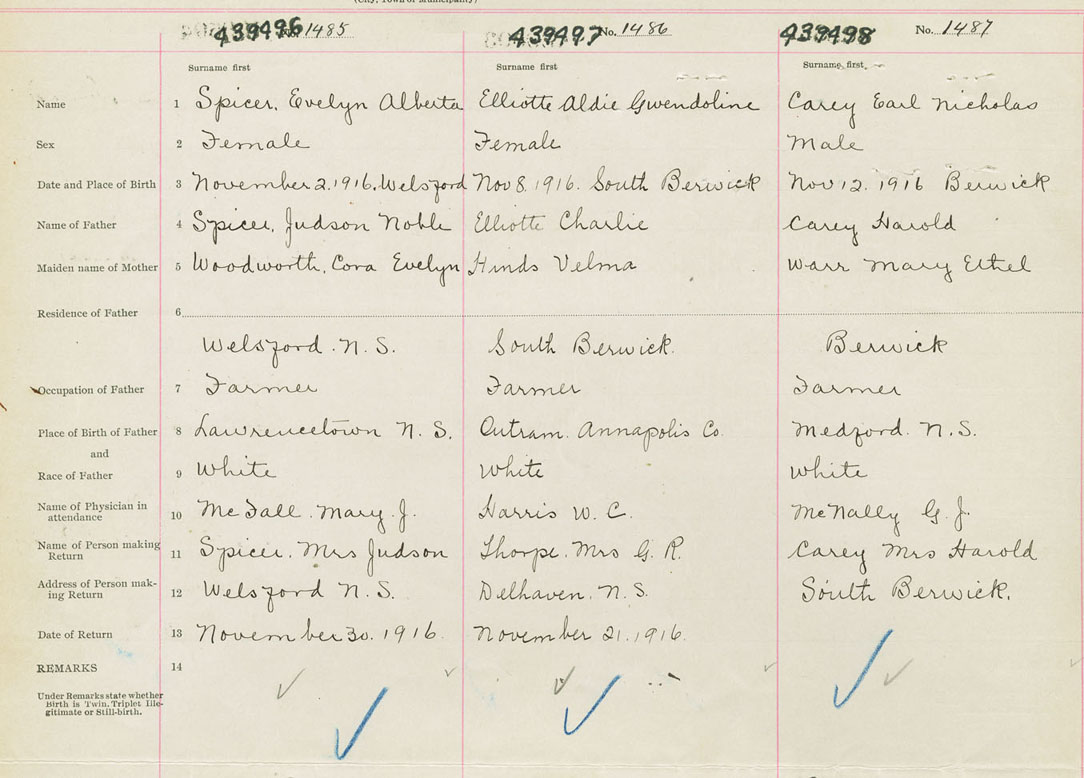 (City, Town or Municipality)
439496 No. 1485 439497 No. 1486 439498 No. 1487
Surname first Surname first Surname first
Name 1 Spicer, Evelyn Alberta Elliotte Aldie Gwendoline Carey Earl Nicholas
Sex 2 Female Female Male
Date and Place of Birth 3 November 2. 1916. Welsford Nov 8. 1916. South Berwick Nov 12. 1916 Berwick
Name of Father 4 Spicer, Judson Noble Elliotte Charlie Carey Harold
Maiden name of Mother 5 Woodworth, Cora Evelyn Hinds Velma Warr Mary Ethel
Residence of Father 6
Welsford. N. S. South Berwick. Berwick
Occupation of Father 7 Farmer Farmer Farmer
Place of Birth of Father 8 Lawrencetown N. S. Outram. Annapolis Co. Medford. N. S.
and
Race of Father 9 White White White
Name of Physician in
attendance 10 McFall. Mary. J. Harris W. C. McNally G. J.
Name of Person making
Return 11 Spicer. Mrs Judson Thorpe. Mrs G. R. Carey Mrs Harold
Address of Person mak-
ing Return 12 Welsford N. S. Delhaven. N. S. South Berwick.
Date of Return 13 November 30. 1916. November 21. 1916.
REMARKS 14
Under Remarks state whether
Birth is Twin, Triplet Ille-
gitimate or Still-birth.